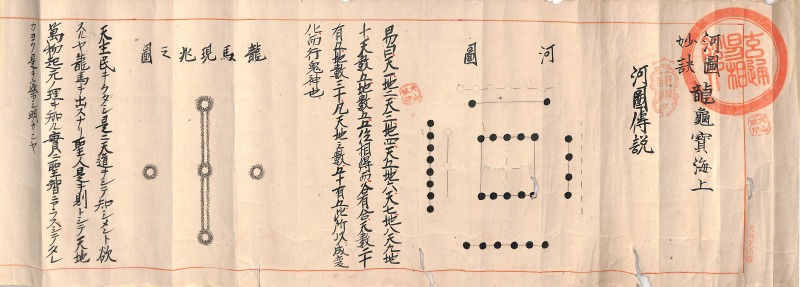 河圖
妙訣 龍龜寳海上
河圖傳説
河圖
易曰天一地二天三地四天五地六天七地八天九地
十天數五地數五五位相得而各有合天數二十
有五地數三十凡天地之數五十有五此所以成變
化而行鬼神也
龍馬現兆之圖
天生民ヲクダシ是ニ天道ヲシテ知シメント欲
スルヤ龍馬ヲ出スナリ聖人是ヲ則トシテ天地
萬物起元ノ理ヲ知ル實ニ聖智ニアラズシテタレ
カヨク是ヲ察シ明カシヤ